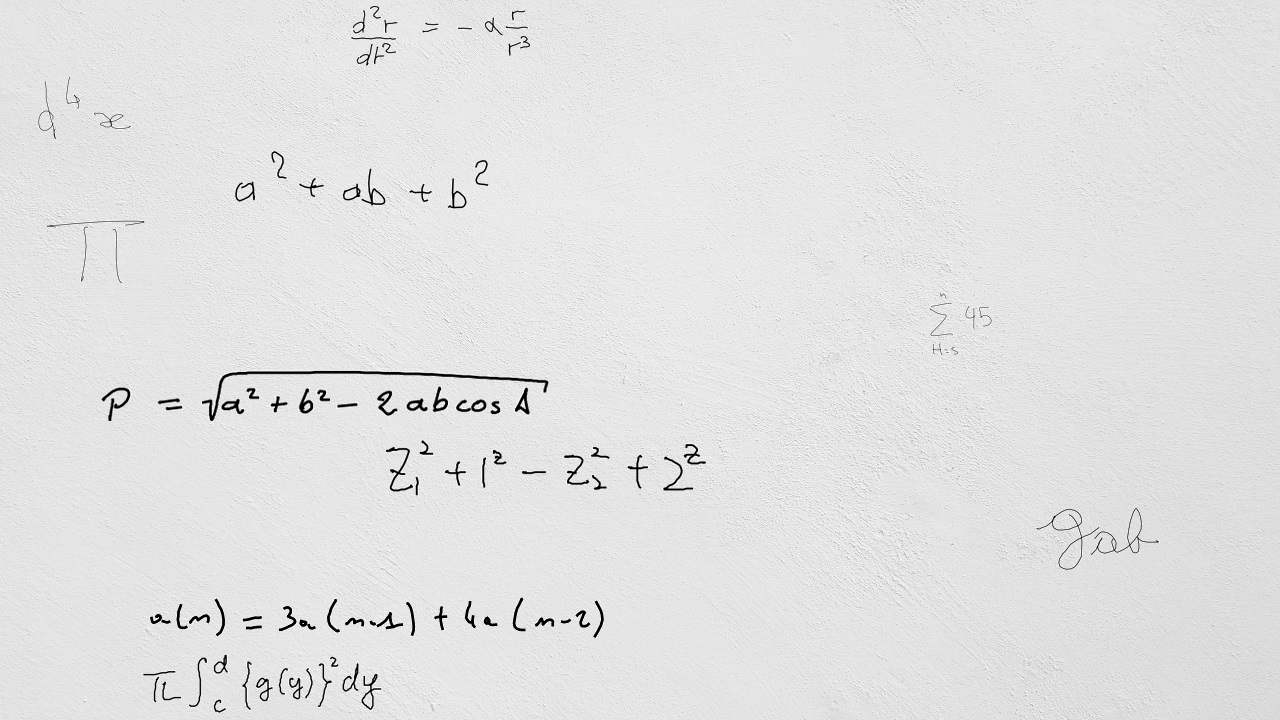 d²r/dt² = -α r/r³
d⁴x
a² + ab + b²
Π
∑ₕ₌ₛⁿ 45
P = √(a² + b² - 2abcosA)
Z₁² + 1ᶻ - Z₂² + 2ᶻ
gab
a(n) = 3a(n-1) + 4a(n-2)
π∫_c^d {g(y)}² dy